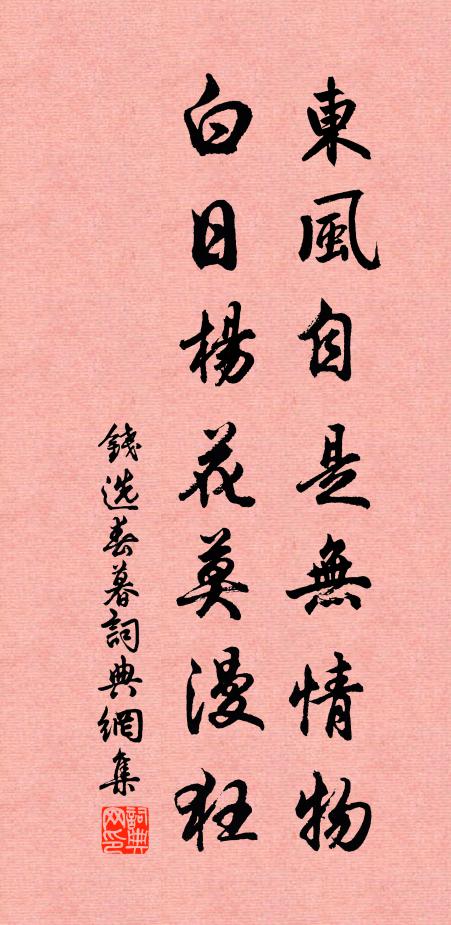 東風自是無情物
白日楊花莫漫狂
錢选春暮詞典網集
詞典网印